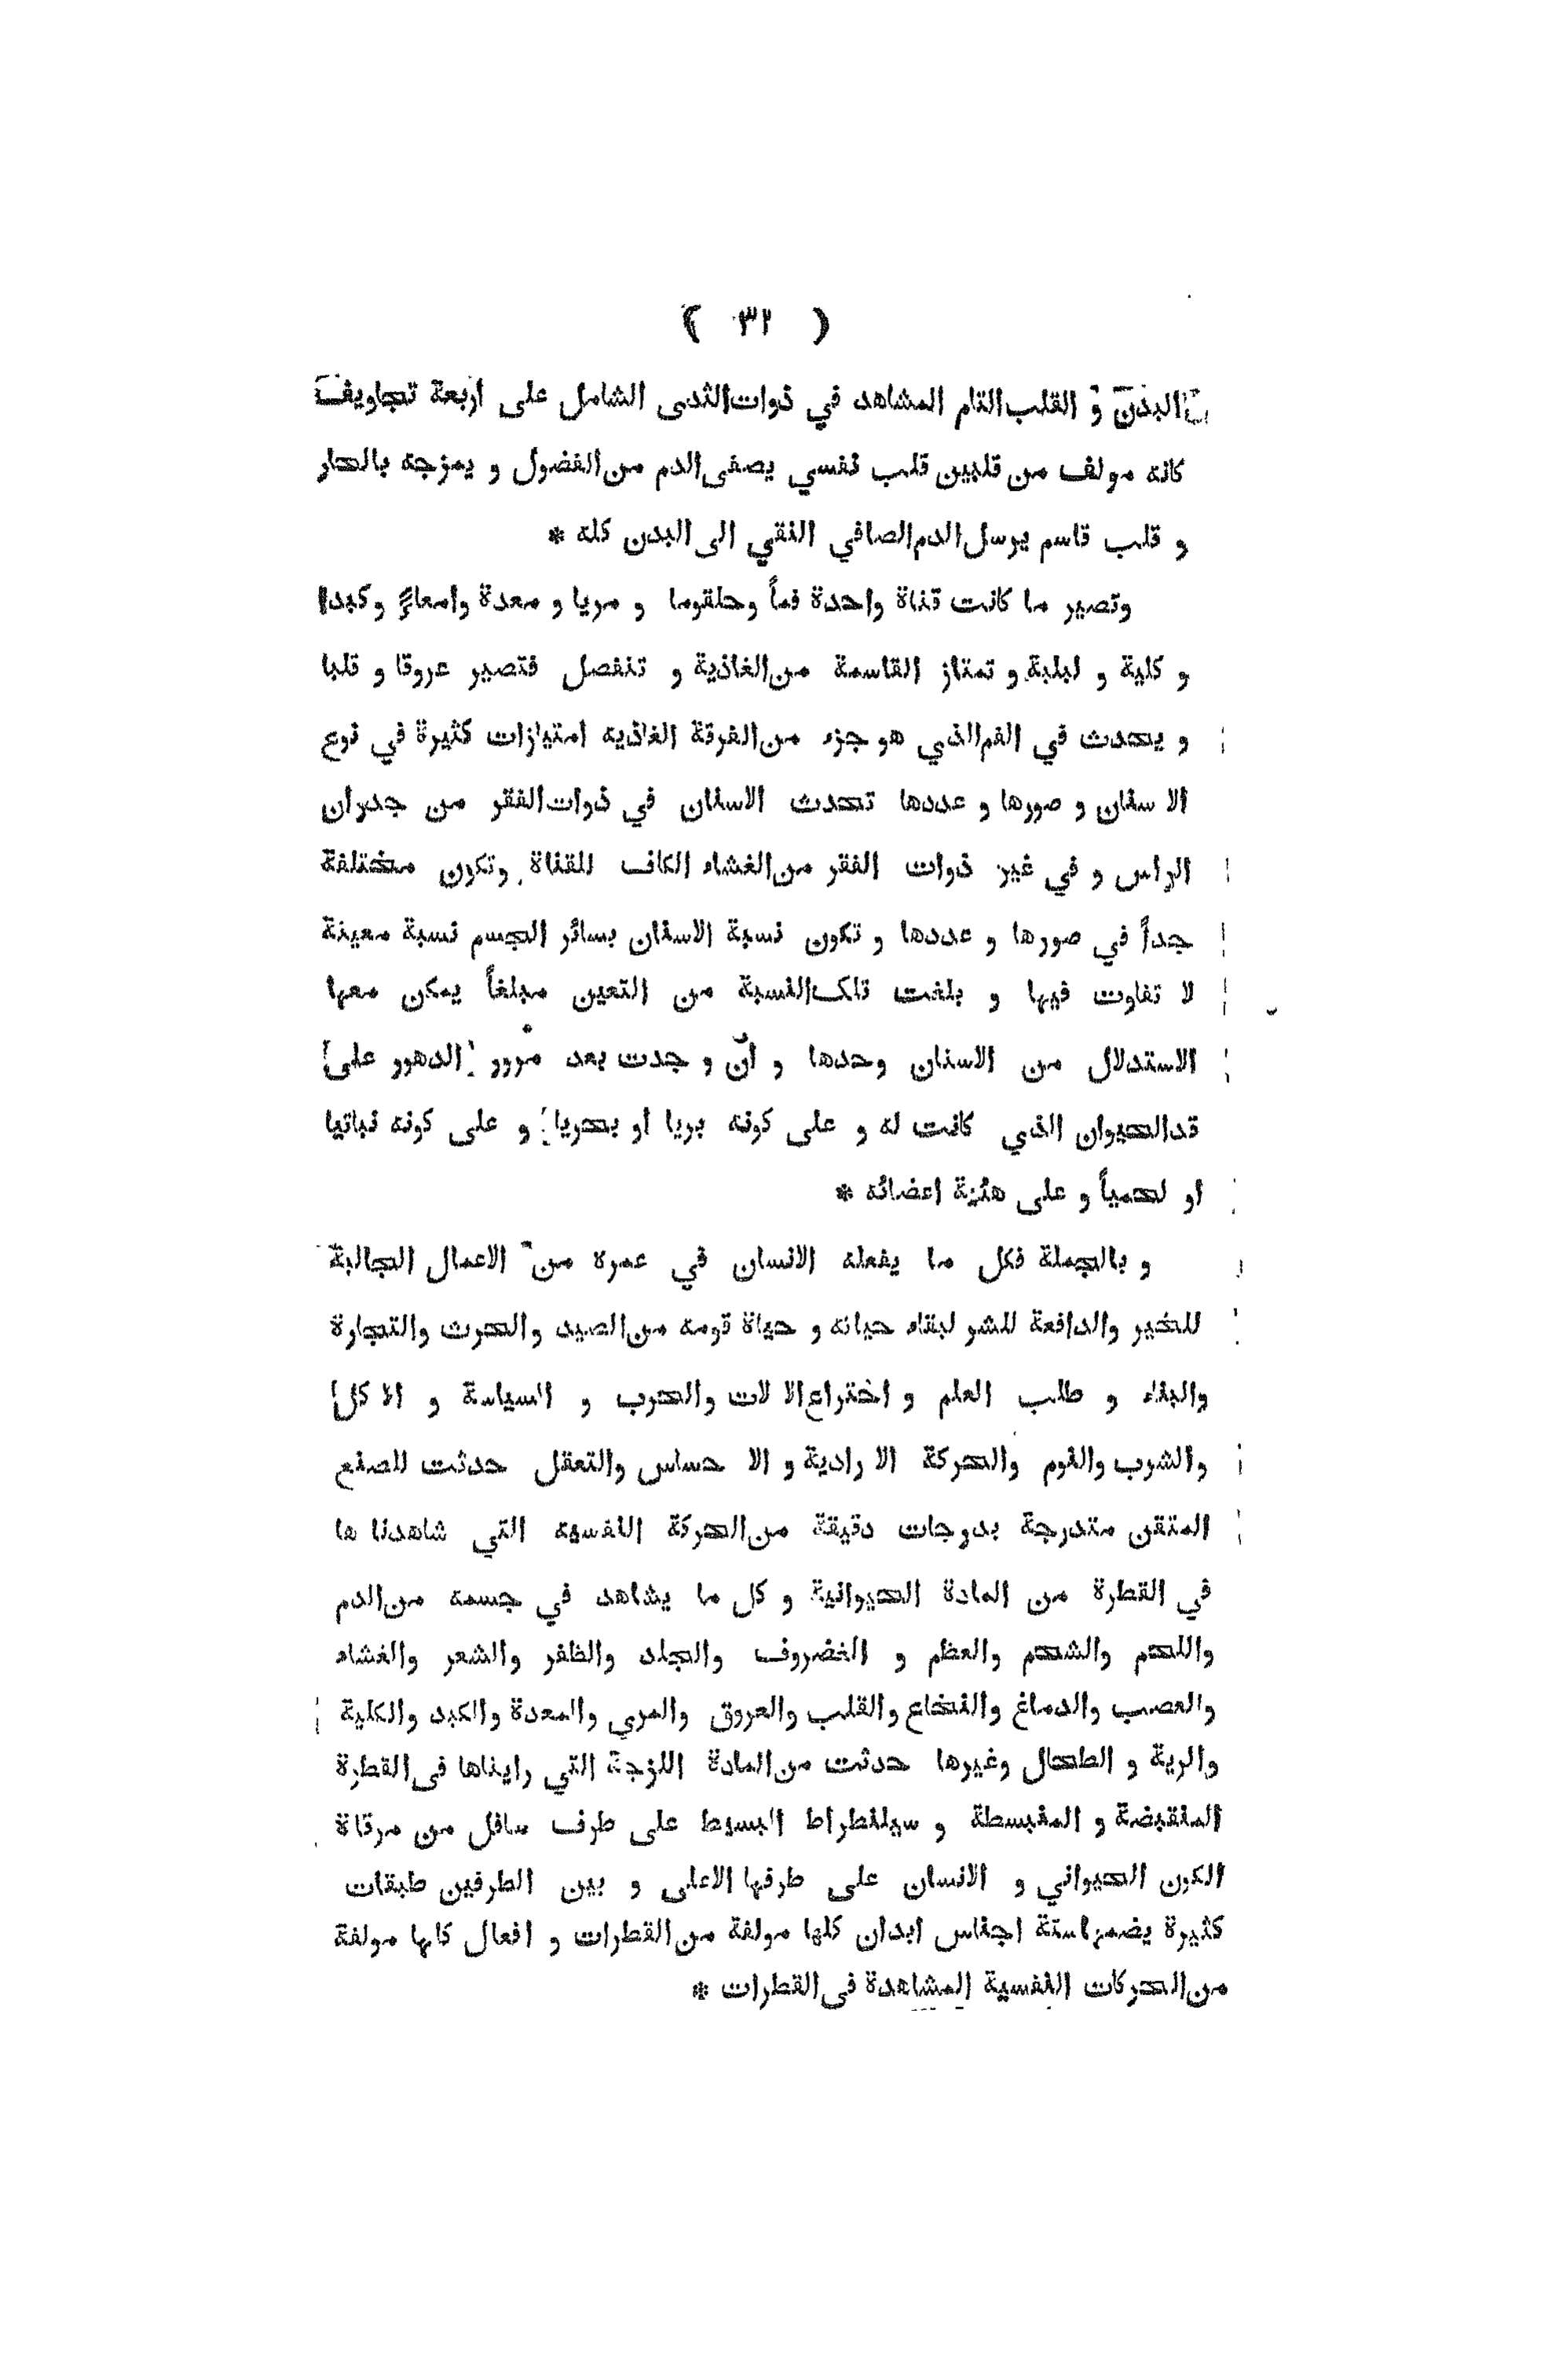 ( ٣٢ )
البدن و القلب التام المشاهد في ذوات الثدى الشامل على اربعة تجاويف
كانه مولف من قلبين قلب نفسي يصفى الدم من الفضول و يمزجه بالحار
و قلب قاسم يرسل الدم الصافي النقي الى البدن كله *
وتصير ما كانت قناة واحدة فماً وحلقوما و مريا و معدة وامعاءً وكبدا
و كلية و لبلبة و تمتاز القاسمة من الغاذية و تنفصل فتصير عروقا و قلبا
و يحدث في الفم الذي هو جزء من الفرقة الغاذيه امتيازات كثيرة في نوع
الا سنان و صورها و عددها تحدث الاسنان في ذوات الفقر من جدران
الراس و في غير ذوات الفقر من الغشاء الكاف للقناة وتكون مختلفة
جداً في صورها و عددها و تكون نسبة الاسنان بسائر الجسم نسبة معينة
لا تفاوت فيها و بلغت تلك النسبة من التعين مبلغاً يمكن معها
الاستدلال من الاسنان وحدها و ان و جدت بعد مرور الدهور على
قد الحيوان الذي كانت له و على كونه بريا او بحريا و على كونه نباتيا
او لحمياً و على هئية اعضائه *
و بالجملة فكل ما يفعله الانسان في عمره من الاعمال الجالبة
للخير والدافعة للشر لبقاء حياته و حياة قومه من الصيد والحرث والتجارة
والبناء و طلب العلم و اختراع الا لات والحرب و السياسة و الا كل
والشرب والنوم والحركة الا رادية و الا حساس والتعقل حدثت للصنع
المتقن متدرجة بدرجات دقيقة من الحركة النفسيه التي شاهدنا ها
في القطرة من المادة الحيوانية و كل ما يشاهد في جسمه من الدم
واللحم والشحم والعظم و الغضروف والجلد والظفر والشعر والغشاء
والعصب والدماغ والنخاع والقلب والعروق والمري والمعدة والكبد والكلية
والرية و الطحال وغيرها حدثت من المادة اللزجة التي رايناها فى القطرة
المنقبضة و المنبسطة و سيلنطراط البسيط على طرف سافل من مرقاة
الكون الحيواني و الانسان على طرفها الاعلى و بين الطرفين طبقات
كثيرة يضمها ستة اجناس ابدان كلها مولفة من القطرات و افعال كلها مولفة
من الحركات النفسية المشاهدة فى القطرات *